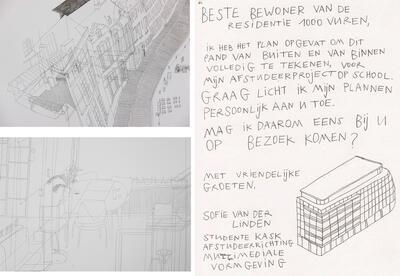 BESTE BEWONER VAN DE
RESIDENTIE 1000 VUREN,
IK HEB HET PLAN OPGEVAT OM DIT
PAND VAN BUITEN EN VAN BINNEN
VOLLEDIG TE TEKENEN, VOOR
MIJN AFSTUDEERPROJECT OP SCHOOL.
GRAAG LICHT IK MIJN PLANNEN
PERSOONLIJK AAN U TOE.
MAG IK DAAROM EENS BIJ U
OP BEZOEK KOMEN?
MET VRIENDELIJKE
GROETEN,
SOFIE VAN DER
LINDEN
STUDENTE KASK
AFSTUDEERRICHTING
MULTIMEDIALE
VORMGEVING